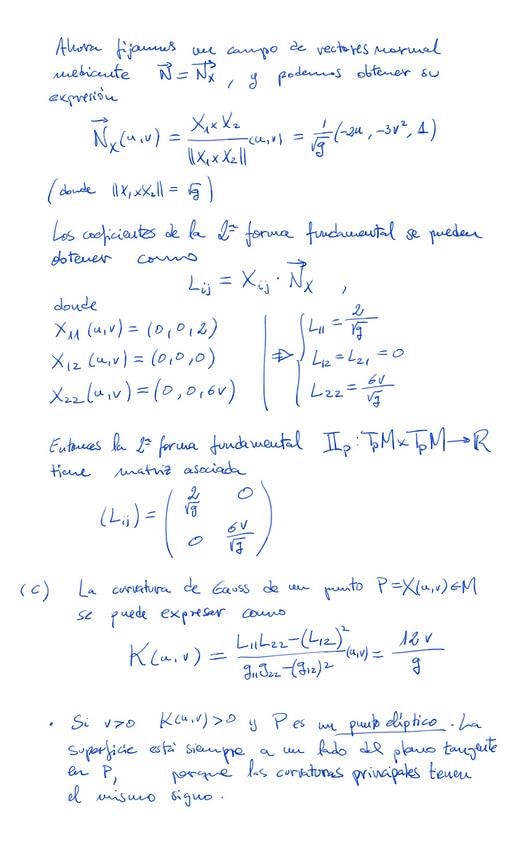 Ahora fijamos un campo de vectores normal
mediante N⃗ = N⃗_X , y podemos obtener su
expresión
N⃗_X(u,v) = (X₁×X₂)/(‖X₁×X₂‖) (u,v) = 1/√g (-2u, -3v², 1)
(donde ‖X₁×X₂‖ = √g)
Los coeficientes de la 2ª forma fundamental se pueden
obtener como
L_ij = X_ij · N⃗_X ,
donde
X₁₁(u,v) = (0,0,2)
X₁₂(u,v) = (0,0,0)
X₂₂(u,v) = (0,0,6v)
⇒ { L₁₁ = 2/√g
L₁₂ = L₂₁ = 0
L₂₂ = 6v/√g
Entonces la 2ª forma fundamental II_p : T_pM × T_pM → ℝ
tiene matriz asociada
(L_ij) = ( 2/√g 0
0 6v/√g )
(c) La curvatura de Gauss de un punto P = X(u,v) ∈ M
se puede expresar como
K(u,v) = (L₁₁L₂₂ - (L₁₂)²)/(g₁₁g₂₂ - (g₁₂)²) (u,v) = 12v/g
· Si v>0 K(u,v)>0 y P es un punto elíptico. La
superficie está siempre a un lado del plano tangente
en P, porque las curvaturas principales tienen
el mismo signo.